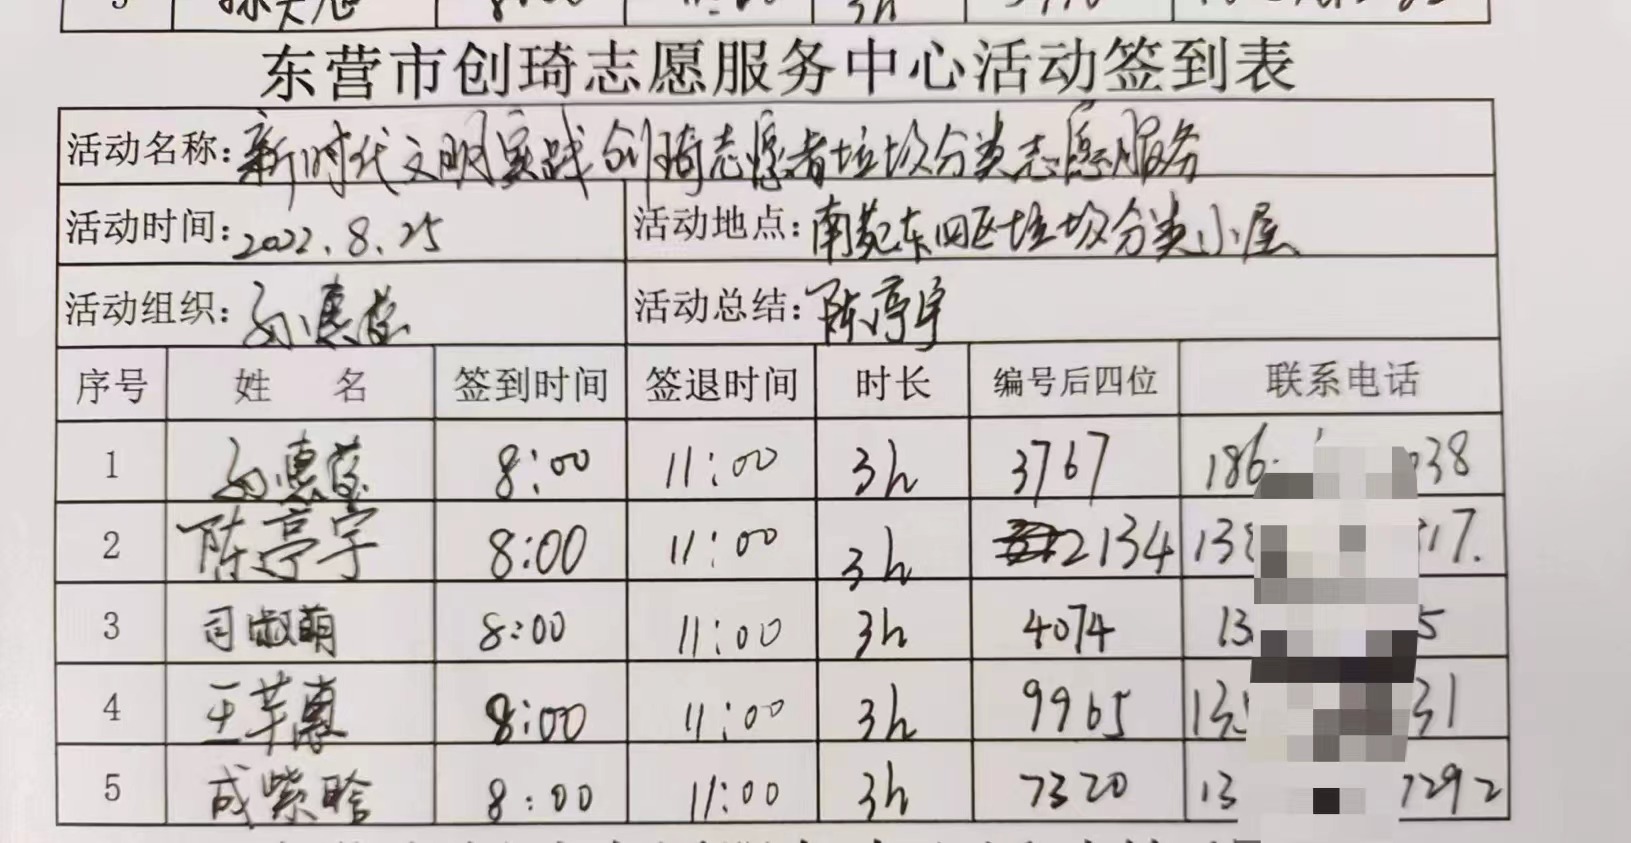 8:00 11:00 3h
东营市创琦志愿服务中心活动签到表
活动名称:新时代文明实践创琦志愿者垃圾分类志愿服务
活动时间:2022.8.25 活动地点:南苑东四区垃圾分类小屋
活动组织:孙惠 活动总结:陈亭宇
序号 姓 名 签到时间 签退时间 时长 编号后四位 联系电话
1 孙惠 8:00 11:00 3h 3767 186 38
2 陈亭宇 8:00 11:00 3h 2134 138 17.
3 司淑萌 8:00 11:00 3h 4074 13 5
4 王苹惠 8:00 11:00 3h 9965 135 31
5 成紫晗 8:00 11:00 3h 7320 13 7292